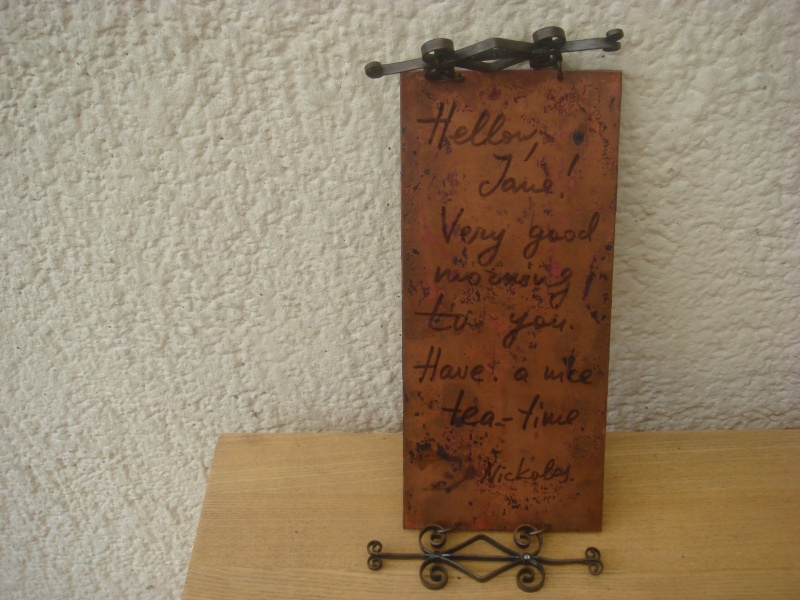 Hellow,
Jane!
Very good
morning
to you.
Have a nice
tea-time
Nickolas.